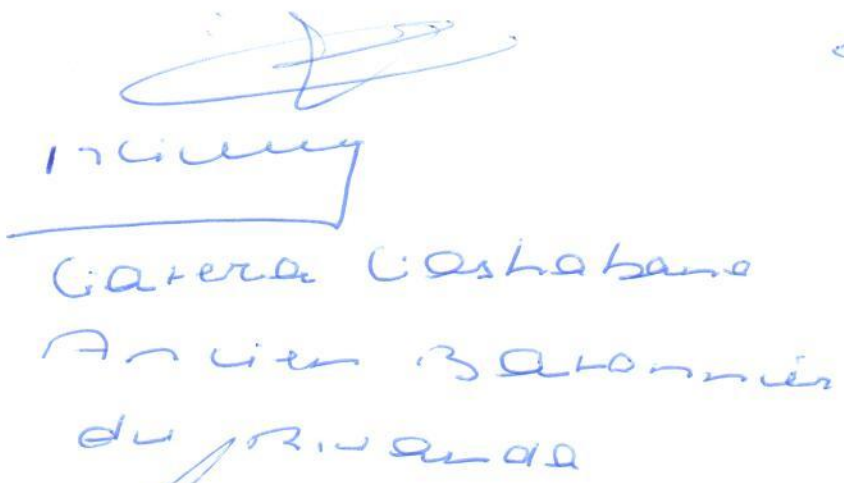 Gatera Gashabana
Ancien Bâtonnier
du Rwanda